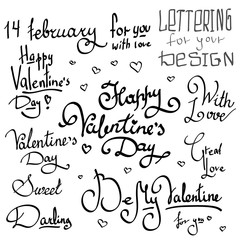 14 february
for you
with love
LETTERING
for your
DESIGN
Happy
Valentine's
Day!
Happy
Valentine's
Day
With
Love
Valentine's
Day
Great
Love
Sweet
Darling
Be My Valentine
for you